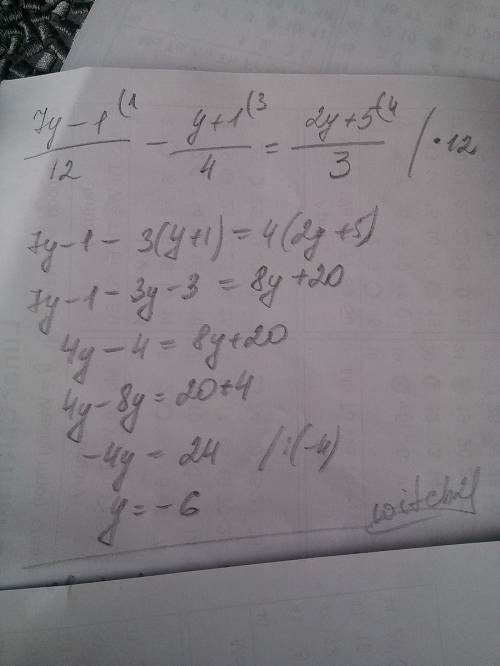 (7y-1)/12 (1 - (y+1)/4 (3 = (2y+5)/3 (4 / ·12
7y-1-3(y+1)=4(2y+5)
7y-1-3y-3=8y+20
4y-4=8y+20
4y-8y=20+4
-4y=24 /:(-4)
y=-6